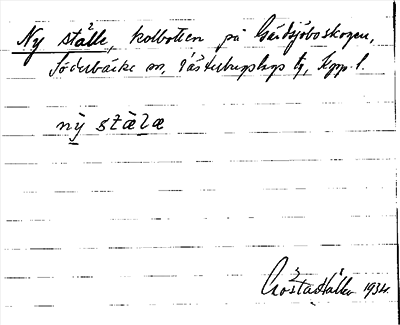 Ny ställe, kolbotten på Gäddsjöboskogen,
Söderbärke sn, Västerbergslags tg, Kopp. l.
nỳ stälɛ
Gösta Hålka 1934